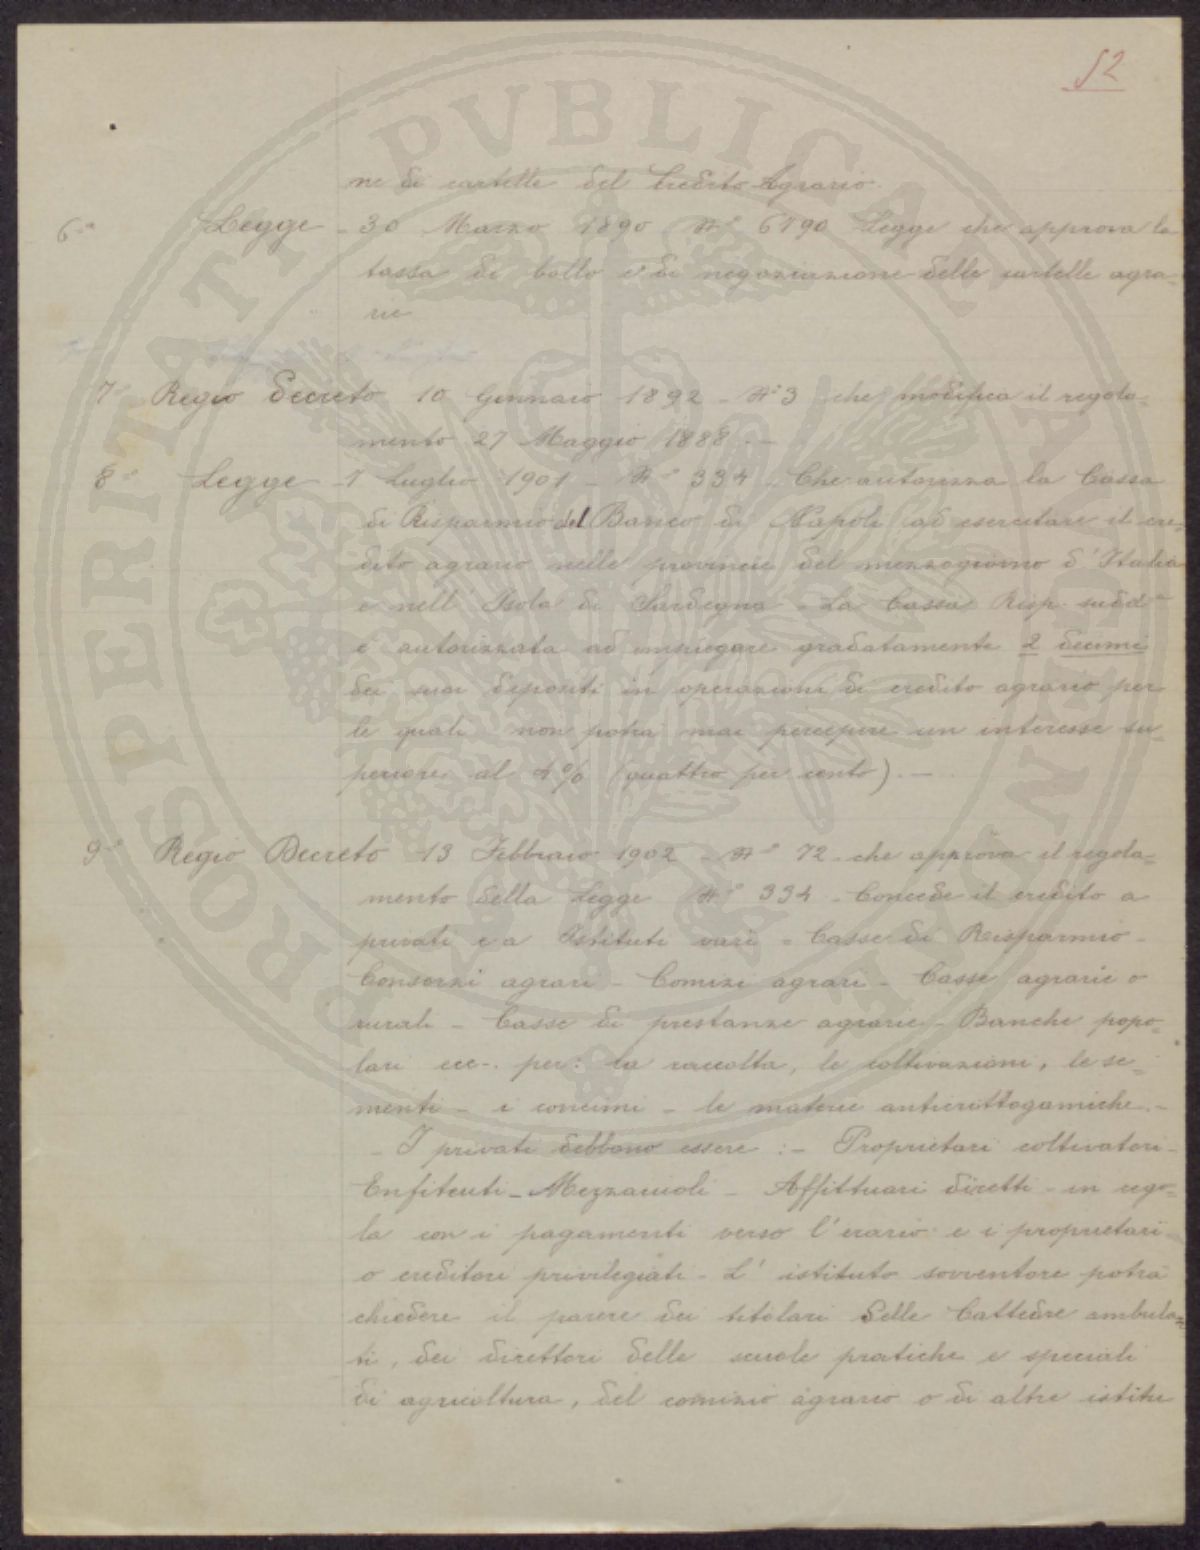 52
ne di cartelle del Credito Agrario.
6° Legge - 30 Marzo 1890 N° 6790 Legge che approva la
tassa di bollo e di negoziazione delle cartelle agra=
rie
7° Regio Decreto 10 Gennaio 1892 - N° 3 che modifica il regola=
mento 27 Maggio 1888. -
8° Legge - 7 Luglio 1901 - N° 334 - Che autorizza la Cassa
di Risparmio del Banco di Napoli ad esercitare il cre=
dito agrario nelle provincie del mezzogiorno d'Italia
e nell'Isola di Sardegna - La Cassa Risp. sudd.ª
è autorizzata ad impiegare gradatamente 2 decimi
dei suoi depositi in operazioni di credito agrario per
le quali non potrà mai percepire un interesse su=
periore al 4% (quattro per cento). -
9° Regio Decreto 13 Febbraio 1902 - N° 72 - che approva il regola=
mento della Legge N° 334 - Concede il credito a
privati e a Istituti vari = Casse di Risparmio -
Consorzi agrari - Comizi agrari - Casse agrarie o
rurali - Casse di prestanze agrarie - Banche popo=
lari ecc-. per: la raccolta, le coltivazioni, le se=
menti - i concimi - le materie anticrittogamiche. -
- I privati debbono essere :- Proprietari coltivatori -
Enfiteuti - Mezzaiuoli - Affittuari diretti - in rego=
la con i pagamenti verso l'erario e i proprietari
o creditori privilegiati - L'istituto sovventore potrà
chiedere il parere dei titolari delle Cattedre ambulan=
ti, dei direttori delle scuole pratiche e speciali
di agricoltura, del comizio agrario o di altre istitu
PROSPERITATI PVBLICAE AVGENDAE